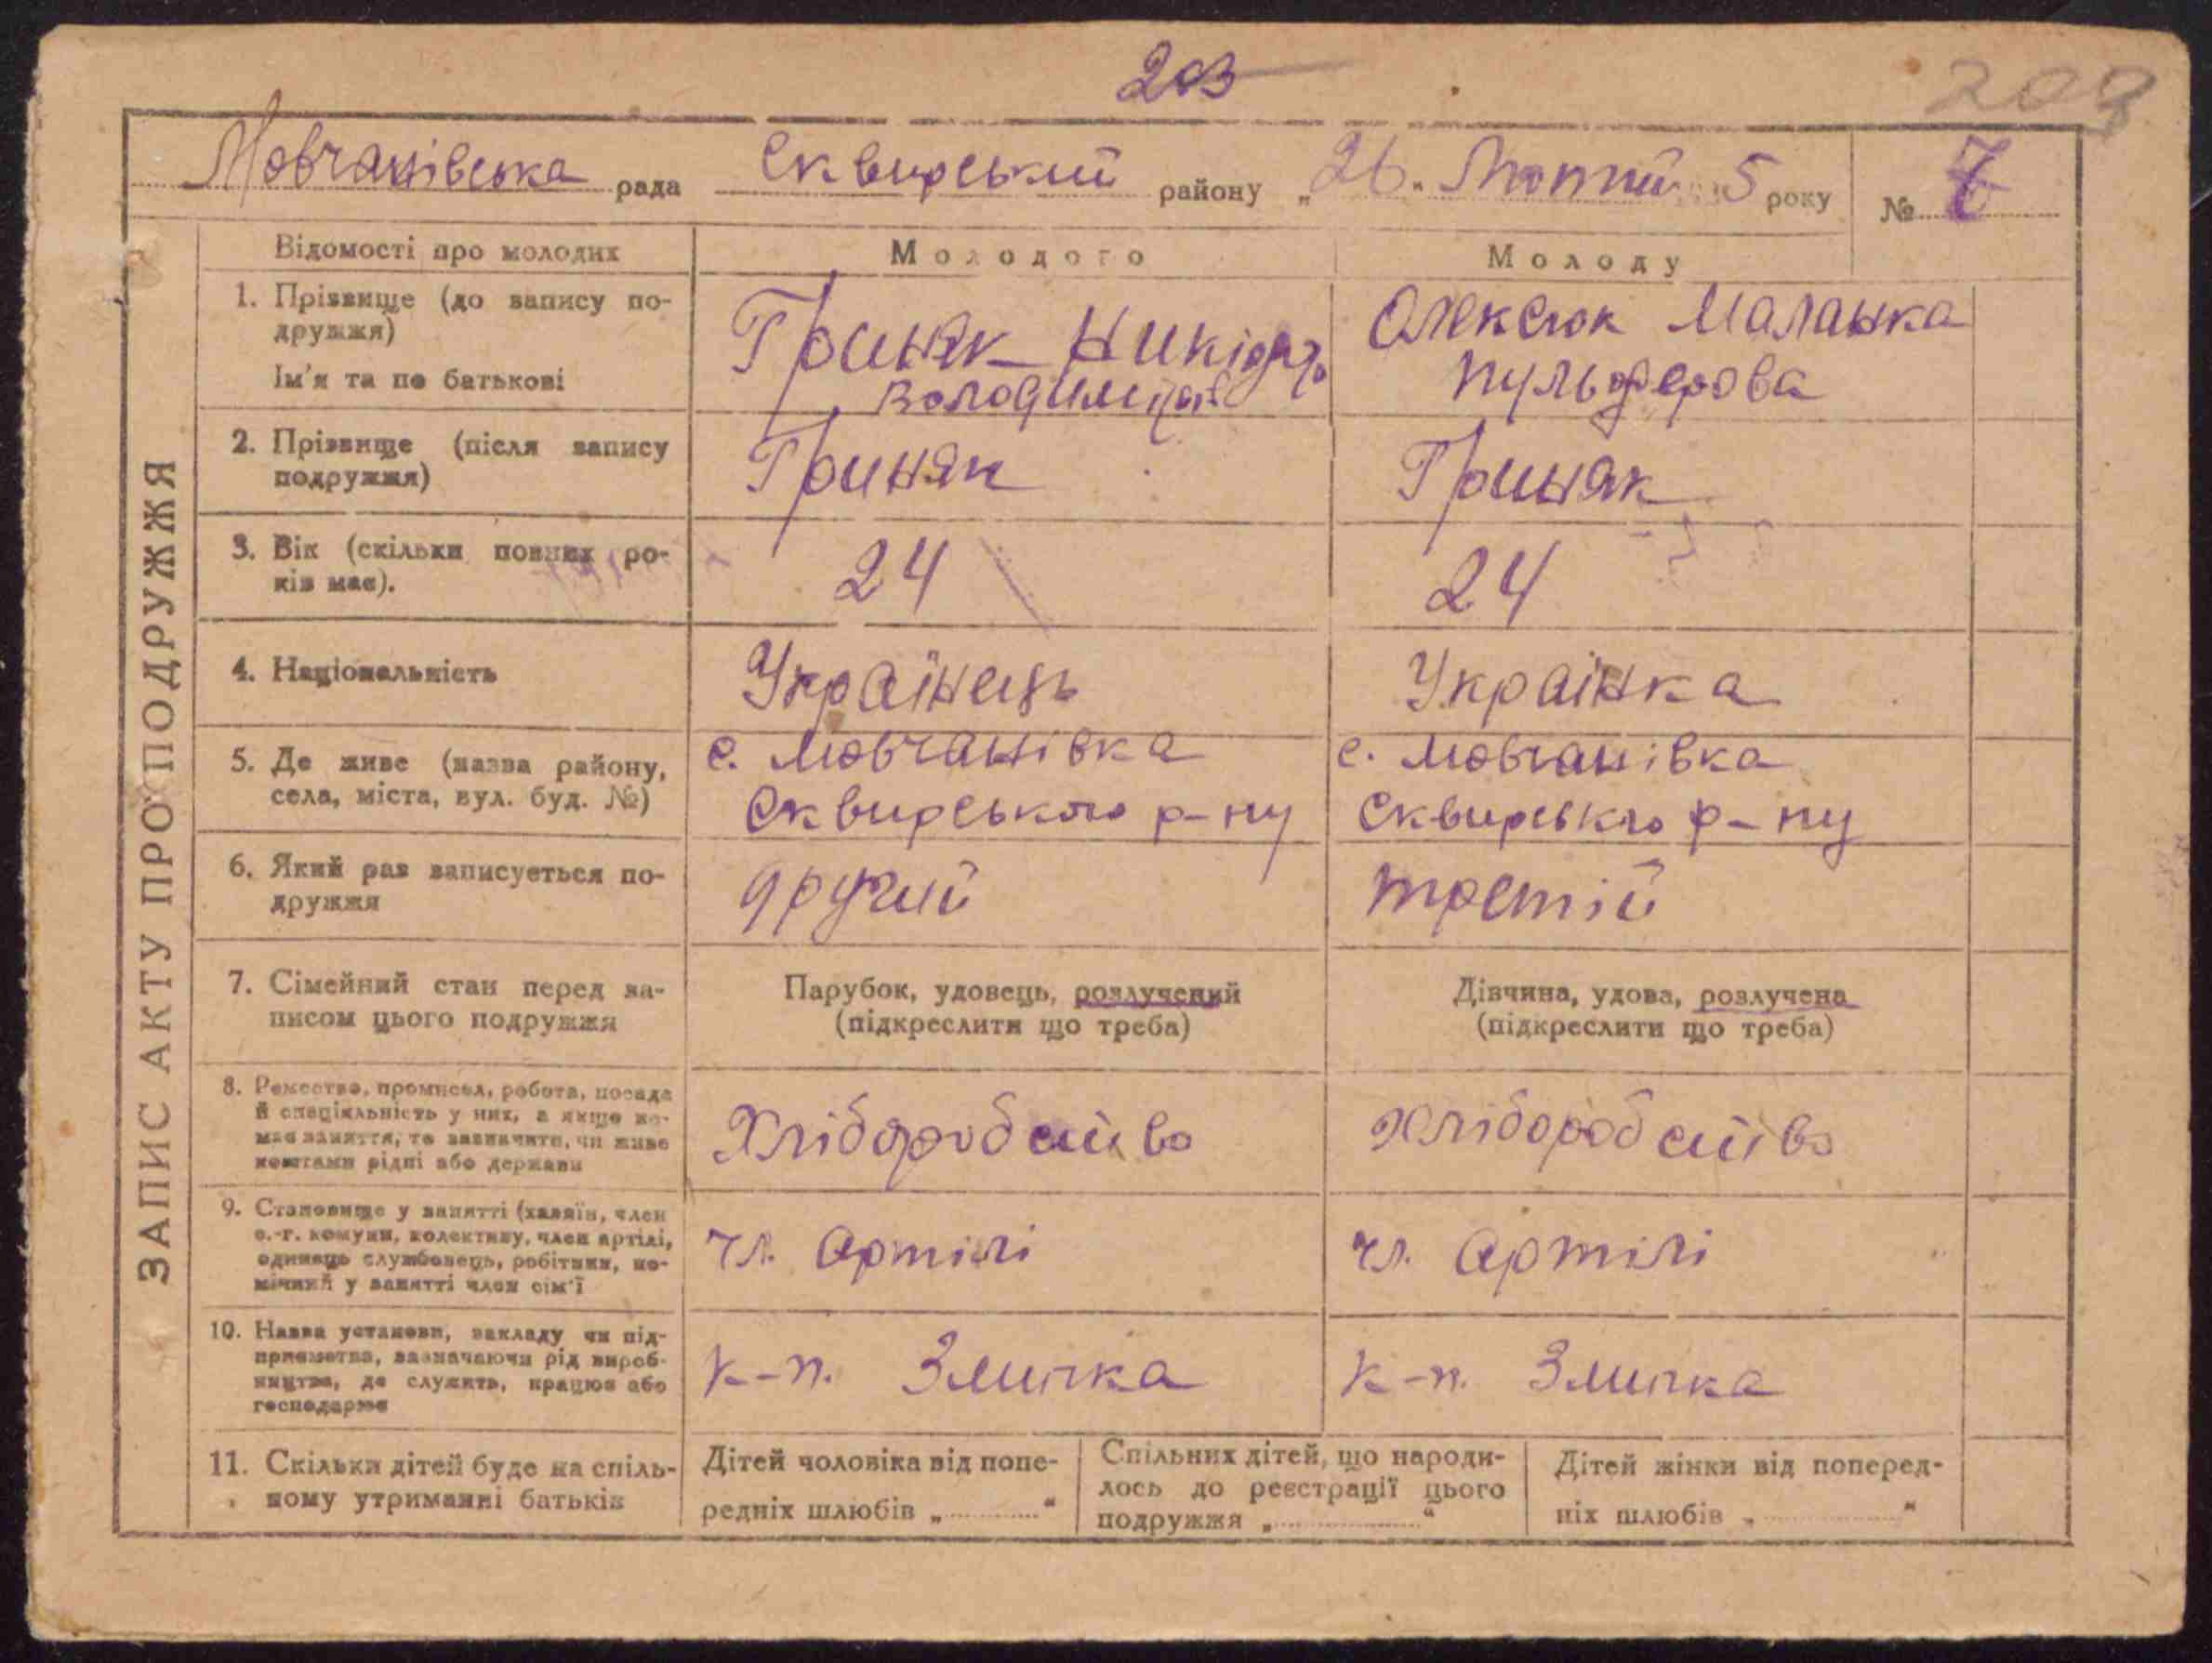 203
Мовчанівська рада Сквирський району „26“ Лютий 5 року № 7
Відомості про молодих
Молодого
Молоду
1. Прізвище (до запису по-
дружжя)
Ім'я та по батькові
Гриняк
Володимиров
Олексюк Маланка
Пульферова
2. Прізвище (після запису
подружжя)
Гриняк
Гриняк
3. Вік (скільки повних ро-
ків має).
24
24
4. Національність
Українець
Українка
5. Де живе (назва району,
села, міста, вул. буд. №)
с. Мовчанівка
Сквирського р-ну
с. Мовчанівка
Сквирського р-ну
6. Який раз записується по-
дружжя
другий
третій
7. Сімейний стан перед за-
писом цього подружжя
Парубок, удовець, розлучений
(підкреслити що треба)
Дівчина, удова, розлучена
(підкреслити що треба)
8. Ремество, промисел, робота, посада
й спеціяльність у них, а якщо не-
має заняття, то зазначити, чи живе
коштами рідні або держави
Хліборобство
Хліборобство
9. Становище у занятті (хазяїн, член
с.-г. комуни, колективу, член артілі,
одинець службовець, робітник, по-
мічний у занятті член сім'ї
чл. артілі
чл. артілі
10. Назва установи, закладу чи під-
приємства, зазначаючи рід вироб-
ництва, де служить, працює або
господарює
к-п. Змичка
к-п. Змичка
11. Скільки дітей буде на спіль-
ному утриманні батьків
Дітей чоловіка від попе-
редніх шлюбів „ “
Спільних дітей, що народи-
лось до реєстрації цього
подружжя „ “
Дітей жінки від поперед-
ніх шлюбів „ “
ЗАПИС АКТУ ПРО ПОДРУЖЖЯ